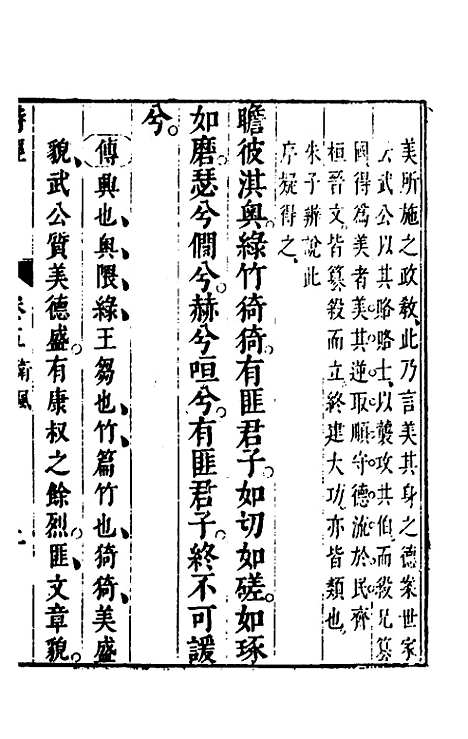 美所施之政敎此乃言美其身之德案世家
云武公以其賂賂士以襲攻其伯而殺兄篡
國得爲美者美其逆取順守德流於民齊
桓晉文皆篡殺而立終建大功亦皆類也
朱子辨說此
序疑得之
瞻彼淇奧。綠竹猗猗。有匪君子。如切如磋。如琢
如磨。瑟兮僩兮。赫兮咺兮。有匪君子。終不可諼
兮。
傳興也、奧、隈、綠、王芻也、竹、篇竹也、猗猗、美盛
貌、武公質美德盛。有康叔之餘烈。匪、文章貌。
詩經
卷五衞風